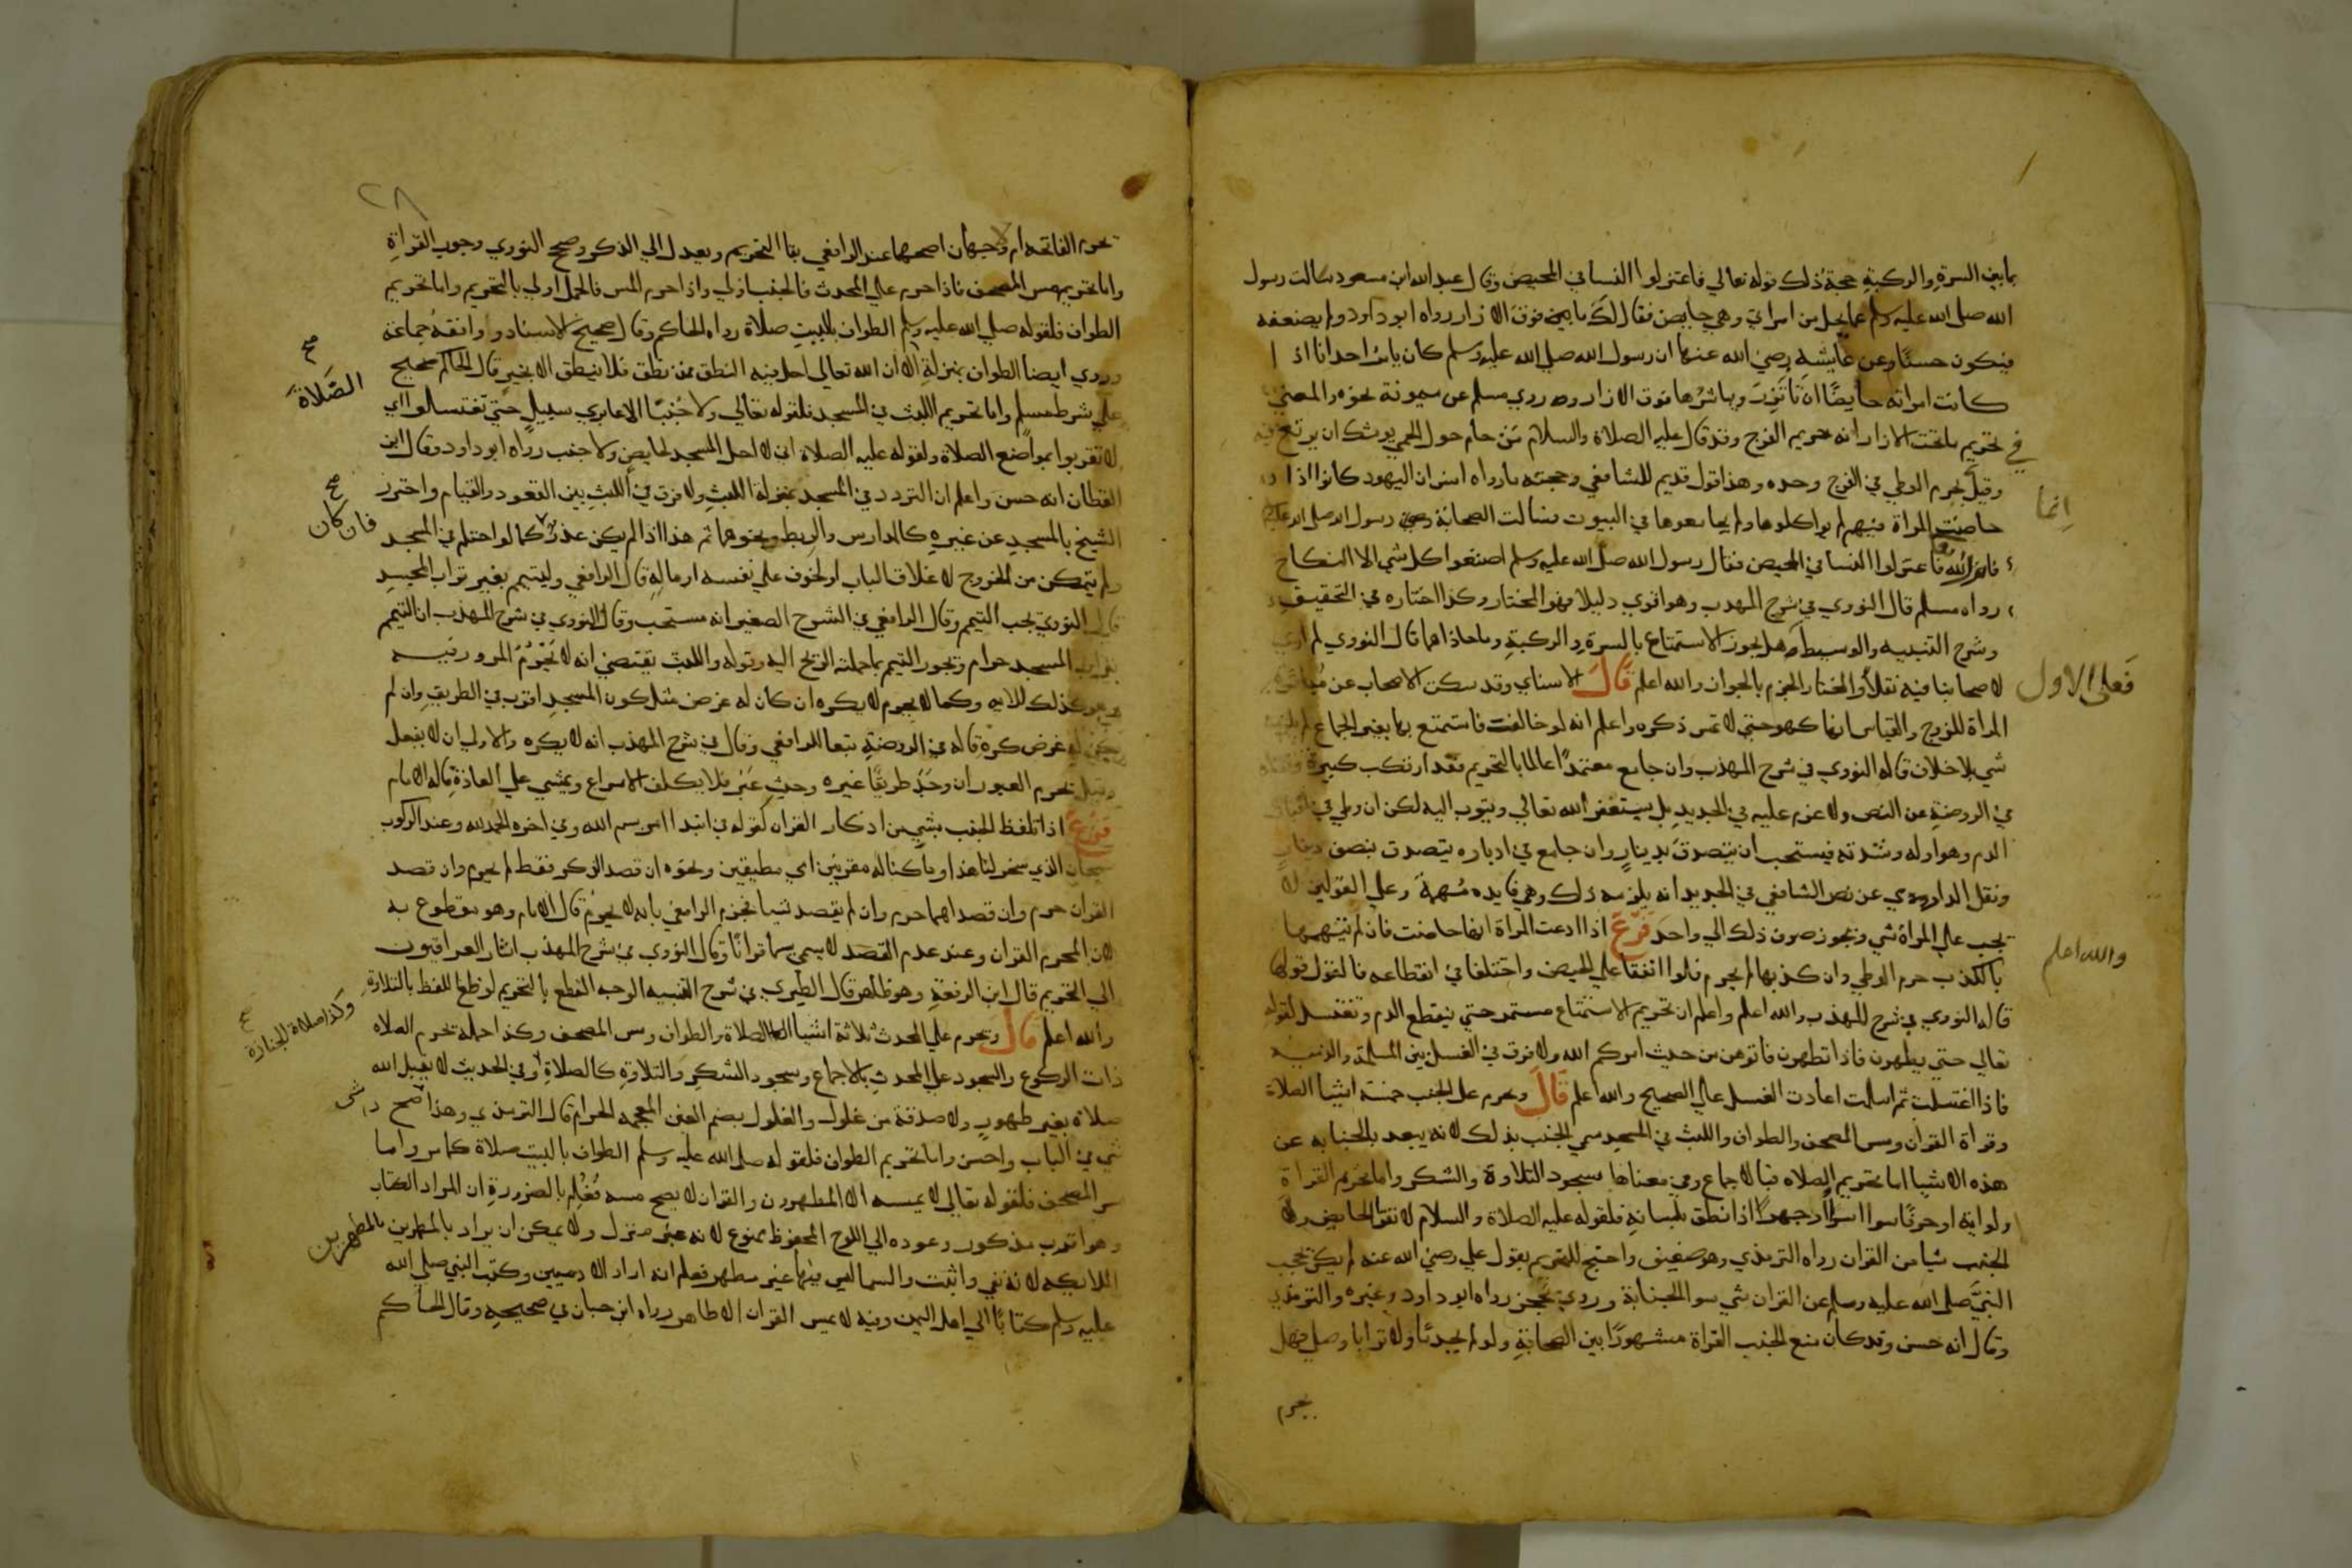 بما بين السرة والركبة حجة ذلك قوله تعالي فاعتزلوا النسا في المحيض وقال عبد الله ابن مسعود سالت رسول
الله صلي الله عليه وسلم عما يحل من امراتي وهي حايض فقال لك ما بين فوق الازار رواه ابو داود ولم يضعفه
فيكون حسنًا وعن عايشه رضي الله عنها ان رسول الله صلي الله عليه وسلم كان يامر احدانا اذا
كانت امراته حايضًا ان تاتزر ويباشرها فوق الازار وروي مسلم عن ميمونة نحوه والمعني
في تحريم ما تحت الازار انه حريم الفرج وقد قال عليه الصلاة والسلام من حام حول الحمي يوشك ان يرتع فيه
وقيل يحرم الوطي في الفرج وحده وهذا قول قديم للشافعي وحجته ما رواه انس ان اليهود كانوا اذا
حاضت المراة فيهم لم يواكلوها ولم يجامعوها في البيوت فسالت الصحابة رسول الله صلي الله عليه
فانزل الله فاعتزلوا النسا في المحيض فقال رسول الله صلي الله عليه وسلم اصنعوا كل شي الا النكاح
رواه مسلم قال النووي في شرح المهذب وهو اقوي دليلا فهو المختار وكذا اختاره في التحقيق
وشرح التنبيه والوسيط هل يجوز الاستمتاع بالسرة والركبة وما حاذاهما قال النووي لم ار
لاصحابنا فيه نقلا والمختار الجزم بالجواز والله اعلم قال الاسناي وقد سكت الاصحاب عن مباشرة
المراة للزوج والقياس انها كهو حتي لا تمس ذكره واعلم انه لو خالف فاستمتع بها بغير الجماع لم
شي بلا خلاف قاله النووي في شرح المهذب وان جامع معتمدًا عالما بالتحريم فقد ارتكب كبيرة
في الروضة عن النص ولا غرم عليه في الجديد بل يستغفر الله تعالي ويتوب اليه لكن ان وطي في
الدم وهو اوله وشدته فيستحب ان يتصدق بدينار وان جامع في ادباره يتصدق بنصف دينار
ونقل الداوردي عن نص الشافعي في الجديد انه يلزمه ذلك وهي فايده مهمة وعلي القولين لا
يجب علي المراة شي ويجوز صرف ذلك الي واحد فرع اذا ادعت المراة انها حاضت فان لم يتهمها
بالكذب حرم الوطي وان كذبها لم يحرم فلو اتفقا علي الحيض واختلفا في انقطاعه فالقول قولها
قاله النووي في شرح المهذب والله اعلم واعلم ان تحريم الاستمتاع مستمر حتي ينقطع الدم وتغتسل لقوله
تعالي حتي يطهرن فاذا تطهرن فاتوهن من حيث امركم الله ولا فرق في الغسل بين المسلمة والذميه
فاذا اغتسلت ثم اسلمت اعادت الغسل علي الصحيح والله اعلم قال ويحرم علي الجنب خمسة اشيا الصلاة
وقراة القران ومس المصحف والطواف واللبث في المسجد سمي الجنب بذلك لانه يبعد بالجنابه عن
هذه الاشيا اما تحريم الصلاه فبالاجماع وفي معناها سجود التلاوة والشكر واما تحريم القراة
ولو اية او حرفًا سوا اسرا وجهرا اذا نطق بلسانه فلقوله عليه الصلاة والسلام لا تقرا الحايض ولا
الجنب شيا من القران رواه الترمذي وهو ضعيف واحتج للتحريم بقول علي رضي الله عنه لم يكن يحجب
النبي صلي الله عليه وسلم عن القران شي سوا الجنابة وروي يحجز رواه ابو داود وغيره والترمذي
وقال انه حسن وقد كان منع الجنب القراة مشهورًا بين الصحابة ولو لم يجد ما ولا ترابا وصلي فهل
يحرم
انما
فعلي الاول
والله اعلم
٢٨
تحرم الفاتحه ام لا وجهان اصحهما عند الرافعي بقا التحريم ويعدل الي الذكر وصحح النووي وجوب القراة
واما تحريم مس المصحف فاذا حرم علي المحدث فالجنب اولي واذا حرم المس فالحمل اولي بالتحريم واما تحريم
الطواف فلقوله صلي الله عليه وسلم الطواف بالبيت صلاة رواه الحاكم وقال صحيح الاسناد ووافقه جماعة
وروي ايضا الطواف بمنزلة الا ان الله تعالي احل فيه النطق فمن نطق فلا ينطق الا بخير قال الحاكم صحيح
علي شرط مسلم واما تحريم اللبث في المسجد فلقوله تعالي ولا جنبًا الا عابري سبيل حتي تغتسلوا اي
لا تقربوا مواضع الصلاة ولقوله عليه الصلاة اني لا احل المسجد لحايض ولا جنب رواه ابو داود وقال ابن
القطان انه حسن واعلم ان التردد في المسجد بمنزلة اللبث ولا فرق في اللبث بين القعود والقيام واحترز
الشيخ بالمسجد عن غيره كالمدارس والربط ونحوهما ثم هذا اذا لم يكن عذر كما لو احتلم في المسجد
ولم يتمكن من الخروج لاغلاق الباب او لخوف علي نفسه او ماله قال الرافعي وليتيمم بغير تراب المسجد
قال النووي تجب التيمم وقال الرافعي في الشرح الصغير انه مستحب وقال النووي في شرح المهذب ان التيمم
بتراب المسجد حرام ويجوز التيمم بما حملته الريح اليه وقوله واللبث يقتضي انه لا يحرم المرور فيه
وهو كذلك للايه وكما لا يحرم لا يكره ان كان له غرض مثل كون المسجد اقرب في الطريق وان لم
يكن له غرض كره قاله في الروضة تبعا للرافعي وقال في شرح المهذب انه لا يكره والاولي ان لا يفعل
وقيل يحرم العبور ان وجد طريقًا غيره وحيث عبر فلا يكلف الاسراع ويمشي علي العادة قاله الامام
فرع اذا تلفظ الجنب بشي من اذكار القران كقوله في ابتدا بسم الله وفي اخره الحمد لله وعند الركوب
سبحان الذي سخر لنا هذا وما كنا له مقرنين اي مطيقين ونحوه ان قصد الذكر فقط لم يحرم وان قصد
القران حرم وان قصدهما حرم وان لم يقصد شيا فجزم الرافعي بانه لا يحرم قال الامام وهو مقطوع به
لان المحرم القران وعند عدم القصد لا يسمي قرانًا وقال النووي في شرح المهذب اشار العراقيون
الي التحريم قال ابن الرفعة وهو ظاهر قال الطبري في شرح التنبيه الوجه القطع بالتحريم لوقوع اللفظ بالتلاوة
والله اعلم قال ويحرم علي المحدث ثلاثة اشيا الصلاة والطواف ومس المصحف وحمله تحرم الصلاه
ذات الركوع والسجود علي المحدث بالاجماع وسجود الشكر والتلاوة كالصلاة وفي الحديث لا يقبل الله
صلاة بغير طهور ولا صدقة من غلول والغلول بضم الغين المعجمه الحرام قال الترمذي وهذا اصح
شي في الباب واحسن واما تحريم الطواف فلقوله صلي الله عليه وسلم الطواف بالبيت صلاة كما مر واما
مس المصحف فلقوله تعالي لا يمسه الا المطهرون والقران لا يصح مسه فعلم بالضرورة ان المراد الكتاب
وهو اقرب مذكور وعوده الي اللوح المحفوظ ممنوع لانه غير منزل ولا يمكن ان يراد بالمطهرين
الملايكه لانه نفي واثبت والسما ليس فيها غير مطهر فعلم انه اراد الادميين وكتب النبي صلي الله
عليه وسلم كتابًا الي اهل اليمن وفيه لا يمس القران الا طاهر رواه ابن حبان في صحيحه وقال الحاكم
صح
الصلاة
صح
فان كان
وكذا صلاة الجنازة
صح
المطهرين